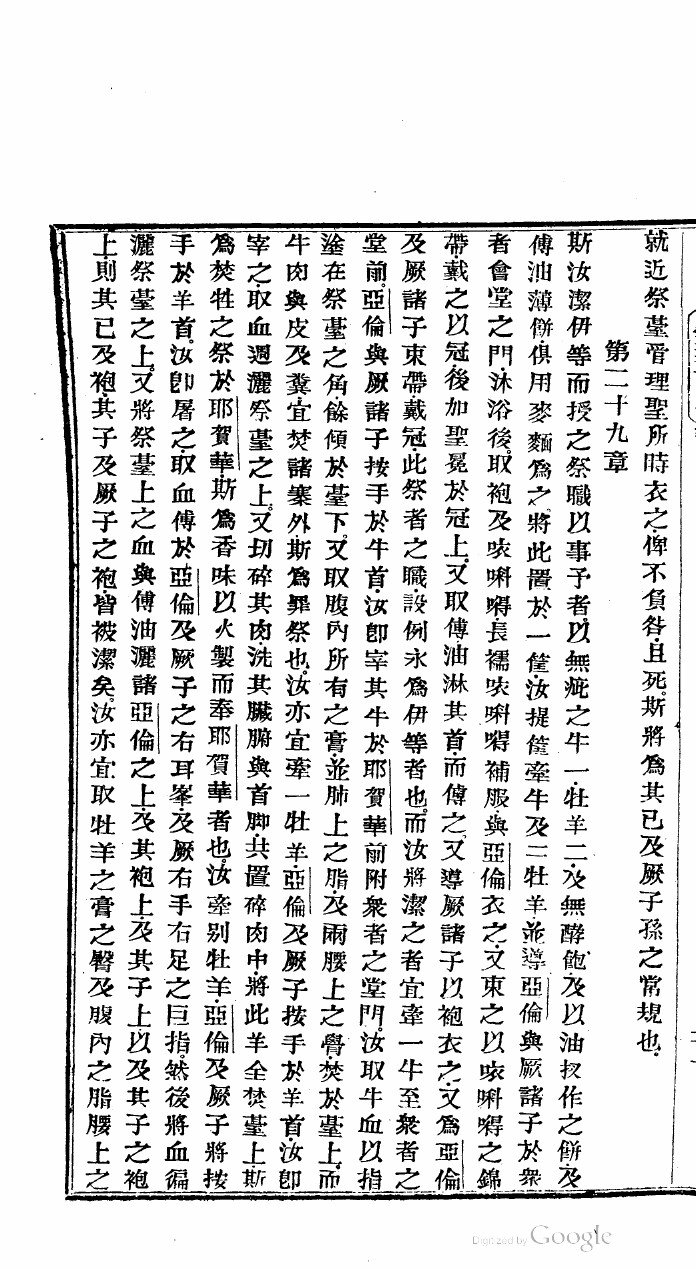 就近祭臺管理聖所時衣之俾不負咎且死斯將爲其已及厥子孫之常規也
第二十九章
斯汝潔伊等而授之祭職以事予者以無疵之牛一牡羊二及無酵飽及以油扠作之餅及
傅油薄餅俱用麥麵爲之將此置於一筐汝提筐牽牛及二牡羊並導亞倫與厥諸子於衆
者會堂之門沐浴後取袍及𠵽唎嘚長襦𠵽唎嘚補服與亞倫衣之又束之以𠵽唎嘚之錦
帶戴之以冠後加聖冕於冠上又取傅油淋其首而傅之又導厥諸子以袍衣之又爲亞倫
及厥諸子束帶戴冠此祭者之職設例永爲伊等者也而汝將潔之者宜牽一牛至衆者之
堂前亞倫與厥諸子按手於牛首汝卽宰其牛於耶賀華前附衆者之堂門汝取牛血以指
塗在祭臺之角餘傾於臺下又取腹內所有之膏並肺上之脂及兩腰上之膋焚於臺上而
牛肉與皮及糞宜焚諸寨外斯爲罪祭也汝亦宜牽一牡羊亞倫及厥子按手於羊首汝卽
宰之取血週灑祭臺之上又切碎其肉洗其臟腑與首脚共置碎肉中將此羊全焚臺上斯
爲焚牲之祭於耶賀華斯爲香味以火製而奉耶賀華者也汝牽別牡羊亞倫及厥子將按
手於羊首汝卽屠之取血傅於亞倫及厥子之右耳峯及厥右手右足之巨指然後將血徧
灑祭臺之上又將祭臺上之血與傅油灑諸亞倫之上及其袍上及其子上以及其子之袍
上則其已及袍其子及厥子之袍皆被潔矣汝亦宜取牡羊之膏之臀及腹內之脂腰上之
Digitized by Google